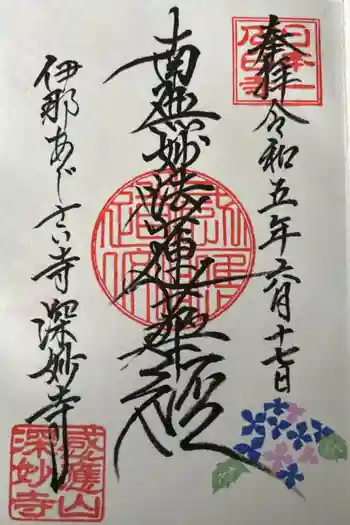 奉拝 令和五年六月十七日
南無妙法蓮華経
伊那あじさい寺 深妙寺
感應山
深妙寺